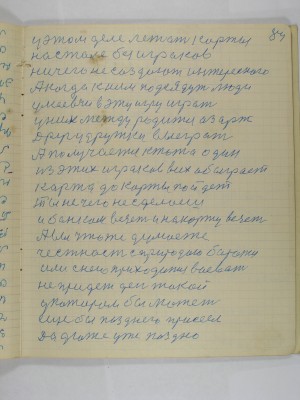 84
и этом деле лежат карты
на столе без игроков
ничего не создают интересного
А когда к ним подойдут люди
умеевчи в эту игру играт
у них между родитца озарж
друг у дружки выеграт
А получаетца кто та один
из этих игроков всех обыграет
карта до карты пойдет
ты нечего не сделаеш
и банком везет и на корту везет
А вы что же думаеже
честност с природою
или с нею приходитца воеват
не придет ден такой
в котором бы может
еще бы позднего присел
Да даже уже поздно